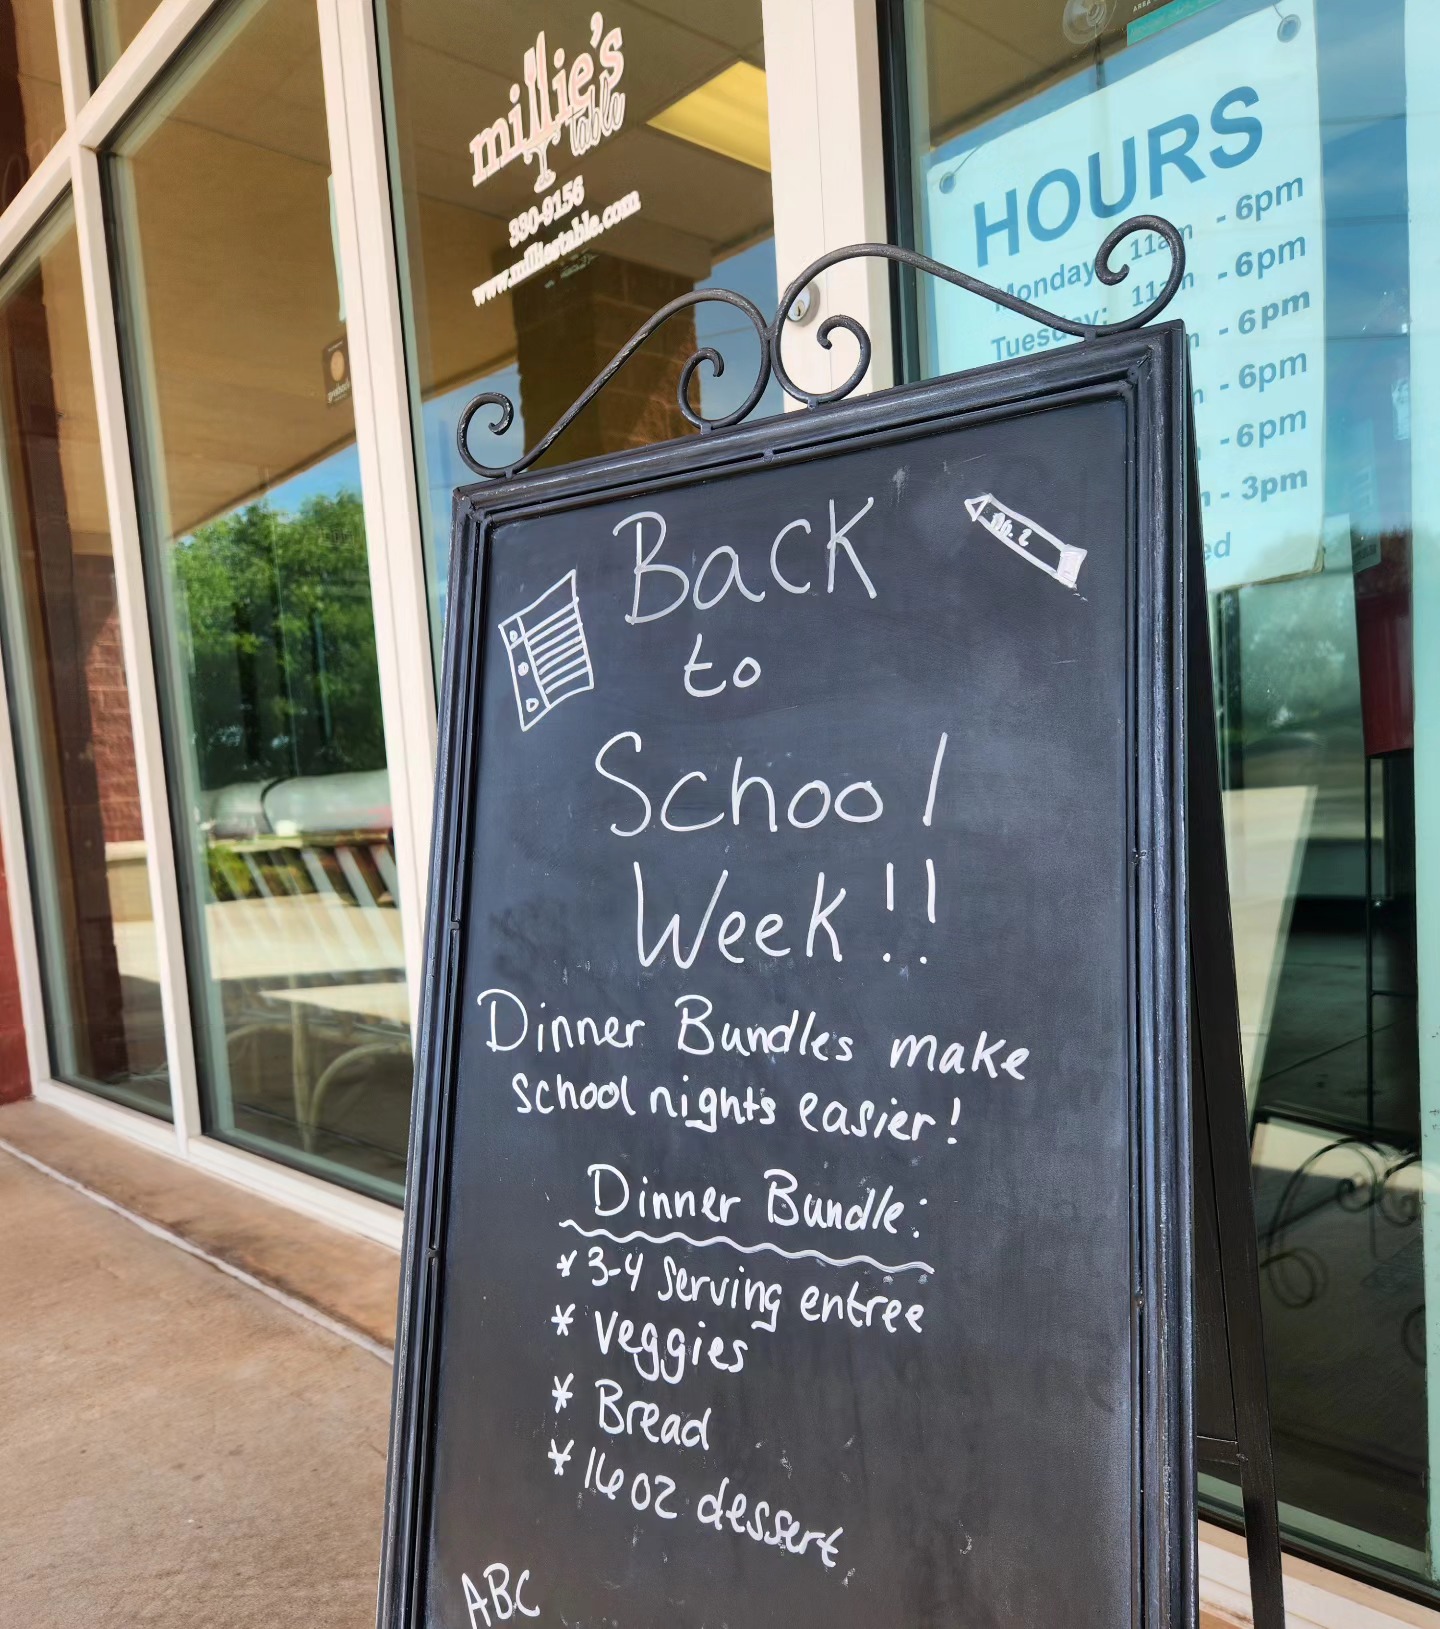 millie's
table
330-9156
www.milliestable.com
HOURS
Monday 11am - 6pm
Tuesday: 11am - 6pm
- 6pm
- 6pm
- 6pm
- 3pm
Back
to
School
Week!!
No. 2
Dinner Bundles make
school nights easier!
Dinner Bundle:
* 3-4 serving entree
* Veggies
* Bread
* 16 oz dessert
ABC